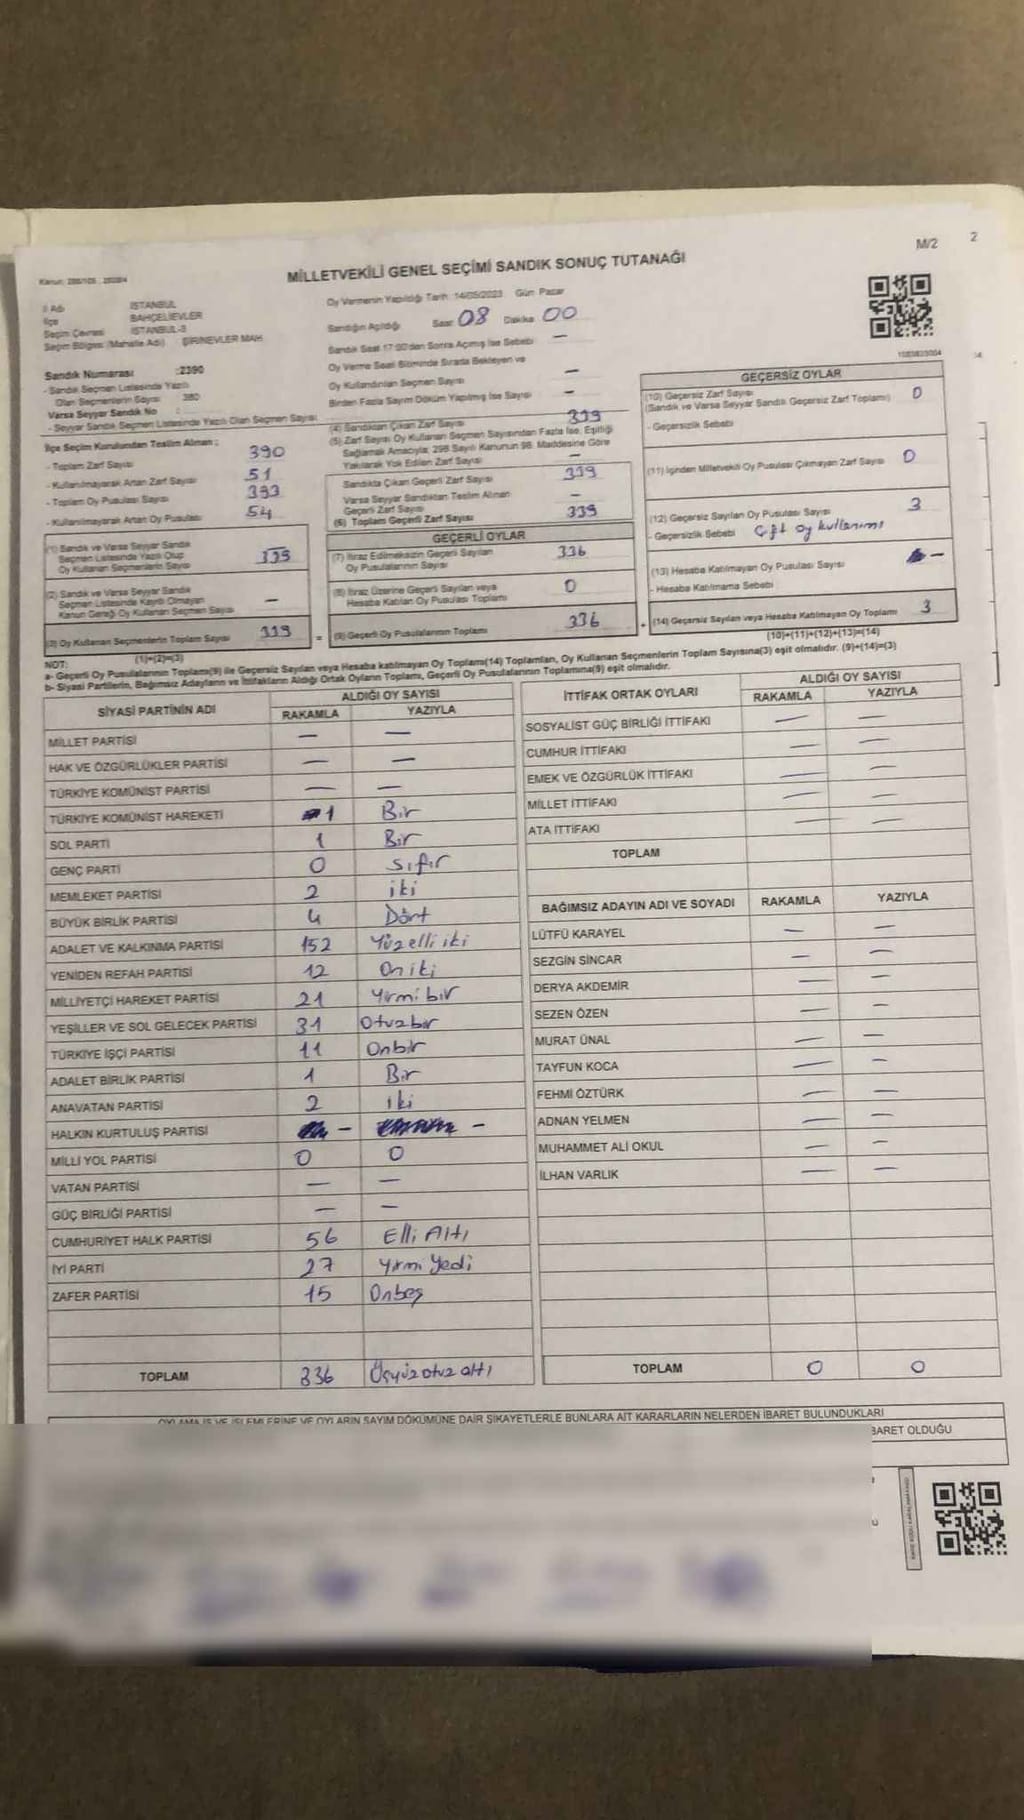 M/2
2
MİLLETVEKİLİ GENEL SEÇİMİ SANDIK SONUÇ TUTANAĞI
İl Adı İSTANBUL
İlçe BAHÇELİEVLER
Seçim Çevresi İSTANBUL-3
Seçim Bölgesi (Mahalle Adı) ŞİRİNEVLER MAH
Oy Vermenin Yapıldığı Tarih: 14/05/2023 Gün: Pazar
Sandığın Açıldığı Saat 08 Dakika 00
Sandık Saat 17:00'den Sonra Açılmış İse Sebebi —
Oy Verme Saati Bitiminde Sırada Bekleyen ve
Oy Kullandırılan Seçmen Sayısı —
Birden Fazla Sayım Döküm Yapılmış İse Sayısı —
Sandık Numarası :2390
- Sandık Seçmen Listesinde Yazılı
Olan Seçmenlerin Sayısı 380
Varsa Seyyar Sandık No :
- Seyyar Sandık Seçmen Listesinde Yazılı Olan Seçmen Sayısı
İlçe Seçim Kurulundan Teslim Alınan :
- Toplam Zarf Sayısı 390
- Kullanılmayarak Artan Zarf Sayısı 51
- Toplam Oy Pusulası Sayısı 393
- Kullanılmayarak Artan Oy Pusulası 54
(1) Sandık ve Varsa Seyyar Sandık
Seçmen Listesinde Yazılı Olup
Oy Kullanan Seçmenlerin Sayısı 339
(2) Sandık ve Varsa Seyyar Sandık
Seçmen Listesinde Kayıtlı Olmayan
Kanun Gereği Oy Kullanan Seçmen Sayısı —
(3) Oy Kullanan Seçmenlerin Toplam Sayısı 339
(1)+(2)=(3)
(4) Sandıktan Çıkan Zarf Sayısı 339
(5) Zarf Sayısı Oy Kullanan Seçmen Sayısından Fazla İse, Eşitliği
Sağlamak Amacıyla; 298 Sayılı Kanunun 98. Maddesine Göre
Yakılarak Yok Edilen Zarf Sayısı —
Sandıkta Çıkan Geçerli Zarf Sayısı 339
Varsa Seyyar Sandıktan Teslim Alınan
Geçerli Zarf Sayısı —
(6) Toplam Geçerli Zarf Sayısı 339
GEÇERLİ OYLAR
(7) İtiraz Edilmeksizin Geçerli Sayılan
Oy Pusulalarının Sayısı 336
(8) İtiraz Üzerine Geçerli Sayılan veya
Hesaba Katılan Oy Pusulası Toplamı 0
= (9) Geçerli Oy Pusulalarının Toplamı 336
GEÇERSİZ OYLAR
(10) Geçersiz Zarf Sayısı 0
(Sandık ve Varsa Seyyar Sandık Geçersiz Zarf Toplamı)
- Geçersizlik Sebebi
(11) İçinden Milletvekili Oy Pusulası Çıkmayan Zarf Sayısı 0
(12) Geçersiz Sayılan Oy Pusulası Sayısı 3
- Geçersizlik Sebebi Çift oy kullanımı
(13) Hesaba Katılmayan Oy Pusulası Sayısı —
- Hesaba Katılmama Sebebi
+ (14) Geçersiz Sayılan veya Hesaba Katılmayan Oy Toplamı 3
(10)+(11)+(12)+(13)=(14)
NOT:
a- Geçerli Oy Pusulalarının Toplamı(9) ile Geçersiz Sayılan veya Hesaba katılmayan Oy Toplamı(14) Toplamları, Oy Kullanan Seçmenlerin Toplam Sayısına(3) eşit olmalıdır. (9)+(14)=(3)
b- Siyasi Partilerin, Bağımsız Adayların ve İttifakların Aldığı Ortak Oyların Toplamı, Geçerli Oy Pusulalarının Toplamına(9) eşit olmalıdır.
SİYASİ PARTİNİN ADI ALDIĞI OY SAYISI
RAKAMLA YAZIYLA
MİLLET PARTİSİ — —
HAK VE ÖZGÜRLÜKLER PARTİSİ — —
TÜRKİYE KOMÜNİST PARTİSİ — —
TÜRKİYE KOMÜNİST HAREKETİ 1 Bir
SOL PARTİ 1 Bir
GENÇ PARTİ 0 Sıfır
MEMLEKET PARTİSİ 2 iki
BÜYÜK BİRLİK PARTİSİ 4 Dört
ADALET VE KALKINMA PARTİSİ 152 Yüzelli iki
YENİDEN REFAH PARTİSİ 12 On iki
MİLLİYETÇİ HAREKET PARTİSİ 21 Yirmi bir
YEŞİLLER VE SOL GELECEK PARTİSİ 31 Otuzbir
TÜRKİYE İŞÇİ PARTİSİ 11 Onbir
ADALET BİRLİK PARTİSİ 1 Bir
ANAVATAN PARTİSİ 2 iki
HALKIN KURTULUŞ PARTİSİ — —
MİLLİ YOL PARTİSİ 0 0
VATAN PARTİSİ — —
GÜÇ BİRLİĞİ PARTİSİ — —
CUMHURİYET HALK PARTİSİ 56 Elli Altı
İYİ PARTİ 27 Yirmi Yedi
ZAFER PARTİSİ 15 Onbeş
TOPLAM 336 Üçyüz otuz altı
İTTİFAK ORTAK OYLARI ALDIĞI OY SAYISI
RAKAMLA YAZIYLA
SOSYALİST GÜÇ BİRLİĞİ İTTİFAKI — —
CUMHUR İTTİFAKI — —
EMEK VE ÖZGÜRLÜK İTTİFAKI — —
MİLLET İTTİFAKI — —
ATA İTTİFAKI — —
TOPLAM
BAĞIMSIZ ADAYIN ADI VE SOYADI RAKAMLA YAZIYLA
LÜTFÜ KARAYEL — —
SEZGİN SİNCAR — —
DERYA AKDEMİR — —
SEZEN ÖZEN — —
MURAT ÜNAL — —
TAYFUN KOCA — —
FEHMİ ÖZTÜRK — —
ADNAN YELMEN — —
MUHAMMET ALİ OKUL — —
İLHAN VARLIK — —
TOPLAM 0 0
OYLAMA İŞ VE İŞLEMLERİNE VE OYLARIN SAYIM DÖKÜMÜNE DAİR ŞİKAYETLERLE BUNLARA AİT KARARLARIN NELERDEN İBARET BULUNDUKLARI
BARET OLDUĞU